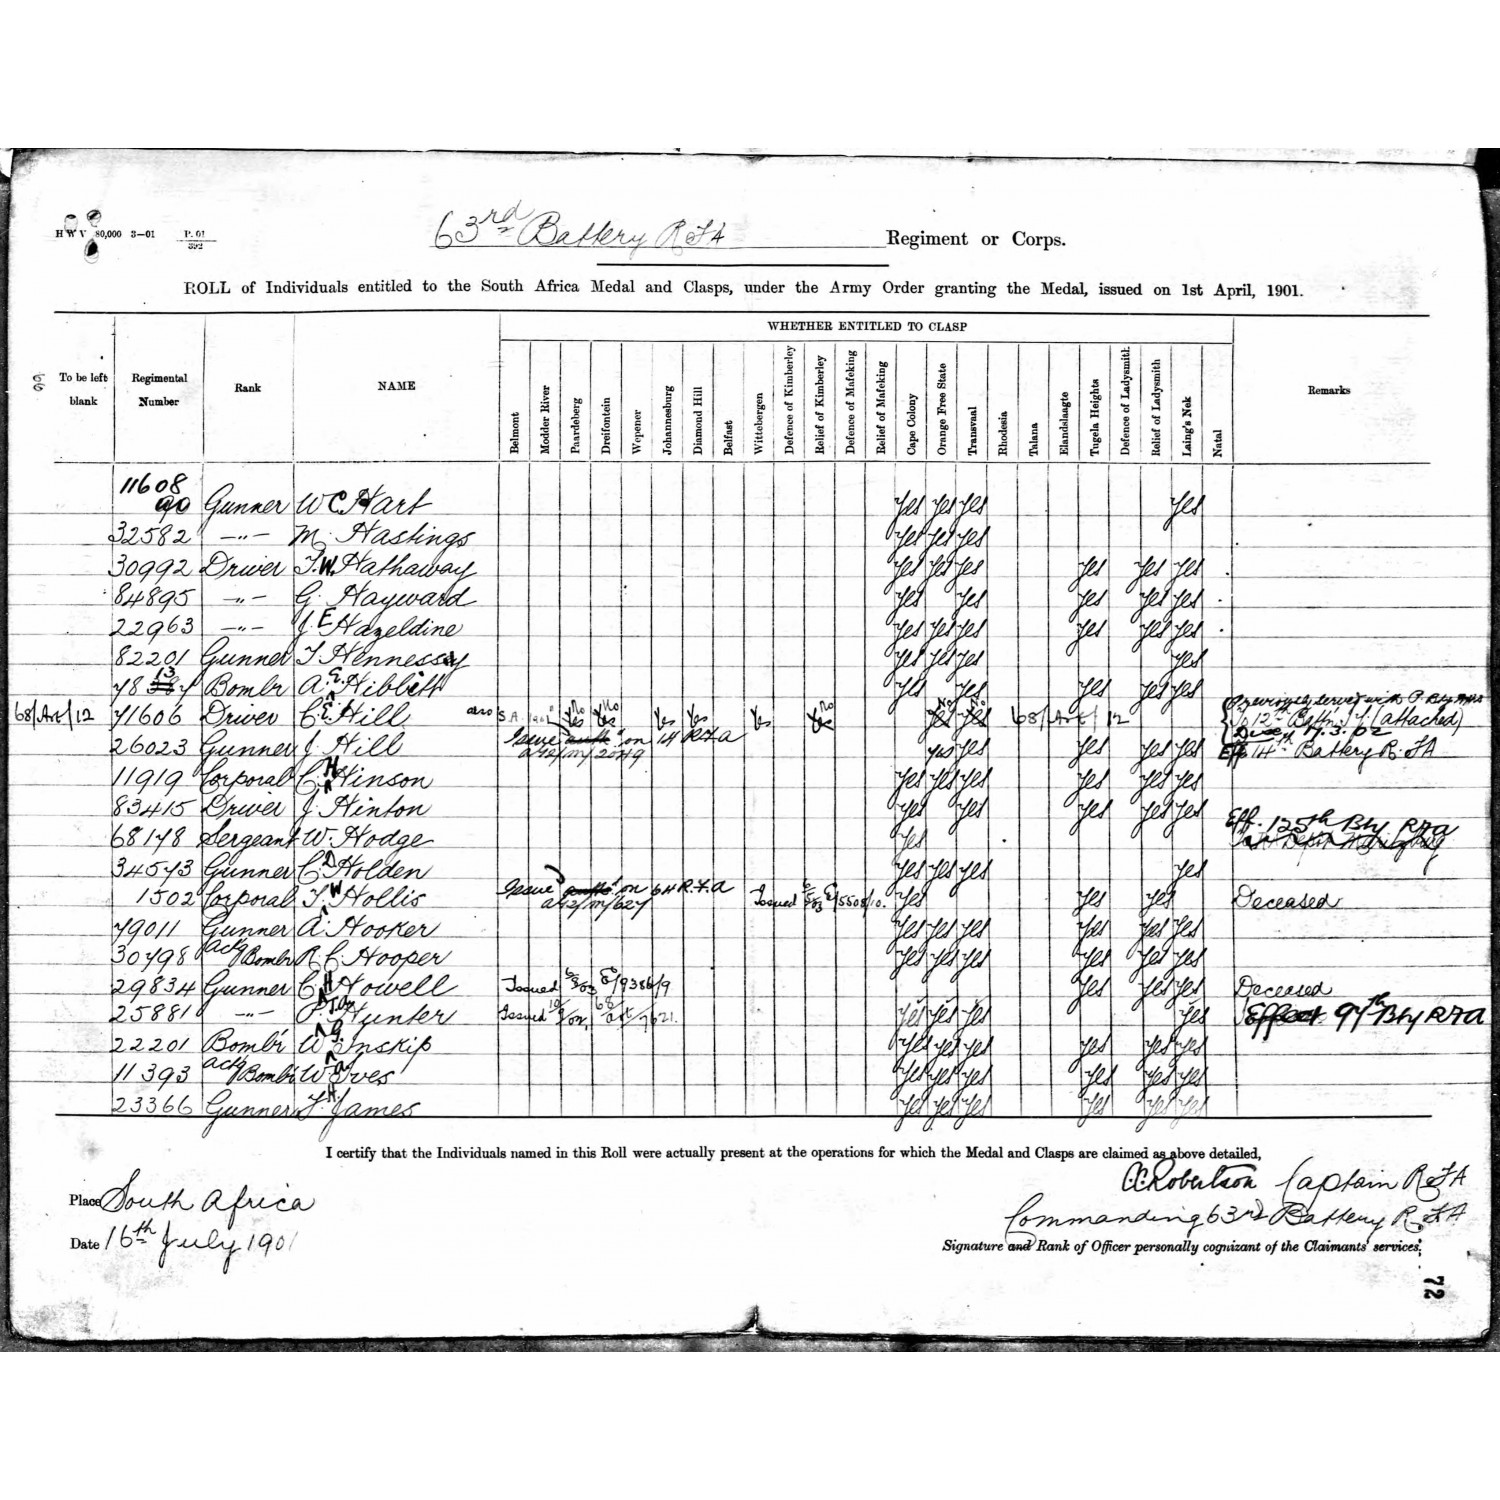 H W V 80,000 3—01 P. 01 / 392
63rd Battery RFA Regiment or Corps.
ROLL of Individuals entitled to the South Africa Medal and Clasps, under the Army Order granting the Medal, issued on 1st April, 1901.
WHETHER ENTITLED TO CLASP
To be left blank Regimental Number Rank NAME Belmont Modder River Paardeberg Dreifontein Wepener Johannesburg Diamond Hill Belfast Wittebergen Defence of Kimberley Relief of Kimberley Defence of Mafeking Relief of Mafeking Cape Colony Orange Free State Transvaal Rhodesia Talana Elandslaagte Tugela Heights Defence of Ladysmith Relief of Ladysmith Laing's Nek Natal Remarks
11608
90 Gunner W C Hart Yes Yes Yes Yes
32582 —"— M. Hastings Yes Yes Yes
30992 Driver T.W. Hathaway Yes Yes Yes Yes Yes Yes
84895 —"— G. Hayward Yes Yes Yes Yes Yes
22963 —"— J. E Hazeldine Yes Yes Yes Yes Yes Yes
82201 Gunner T Hennessy Yes Yes Yes Yes
78 13 Bombr A. E. Hibbitt Yes Yes Yes Yes Yes
68/Art/12 71606 Driver C. E Hill also S.A. 1901 Yes No Yes No Yes Yes Yes Yes No Yes No Yes No 68/Art/12 Previously served with P. Bty RHA
To 12th Battn (attached)
7.3.02
26023 Gunner J. Hill Issue on 14 RFA Yes Yes Yes Yes Yes Eff 14th Battery R.FA
11919 Corporal C. H Hinson Yes Yes Yes Yes Yes Yes
83415 Driver J. Hinton Yes Yes Yes Yes Yes
68178 Sergeant W. Hodge Yes Eff. 125th Bty RFA
34573 Gunner C. D Holden Yes Yes Yes Yes
1502 Corporal T. W Hollis Issue on 64 R.F.A Issued E/5508/10. Yes Yes Yes Deceased
79011 Gunner A. Hooker Yes Yes Yes Yes Yes Yes
30798 actg Bombr R. C. Hooper Yes Yes Yes Yes Yes Yes
29834 Gunner C. H Howell Issued E/9386/9 Yes Yes Yes Deceased
25881 —"— Hunter Issued 68/Art/7621. Yes Yes Yes Yes Effect 97th Bty RFA
22201 Bombr W. G. Inskip Yes Yes Yes Yes Yes Yes
11393 actg Bombr W a Ives Yes Yes Yes Yes Yes Yes
23366 Gunner T. H James Yes Yes Yes Yes Yes Yes
I certify that the Individuals named in this Roll were actually present at the operations for which the Medal and Clasps are claimed as above detailed,
C.C. Robertson Captain RFA
Place South Africa
Commanding 63rd Battery R.FA
Date 16th July 1901
Signature and Rank of Officer personally cognizant of the Claimants' services.
72